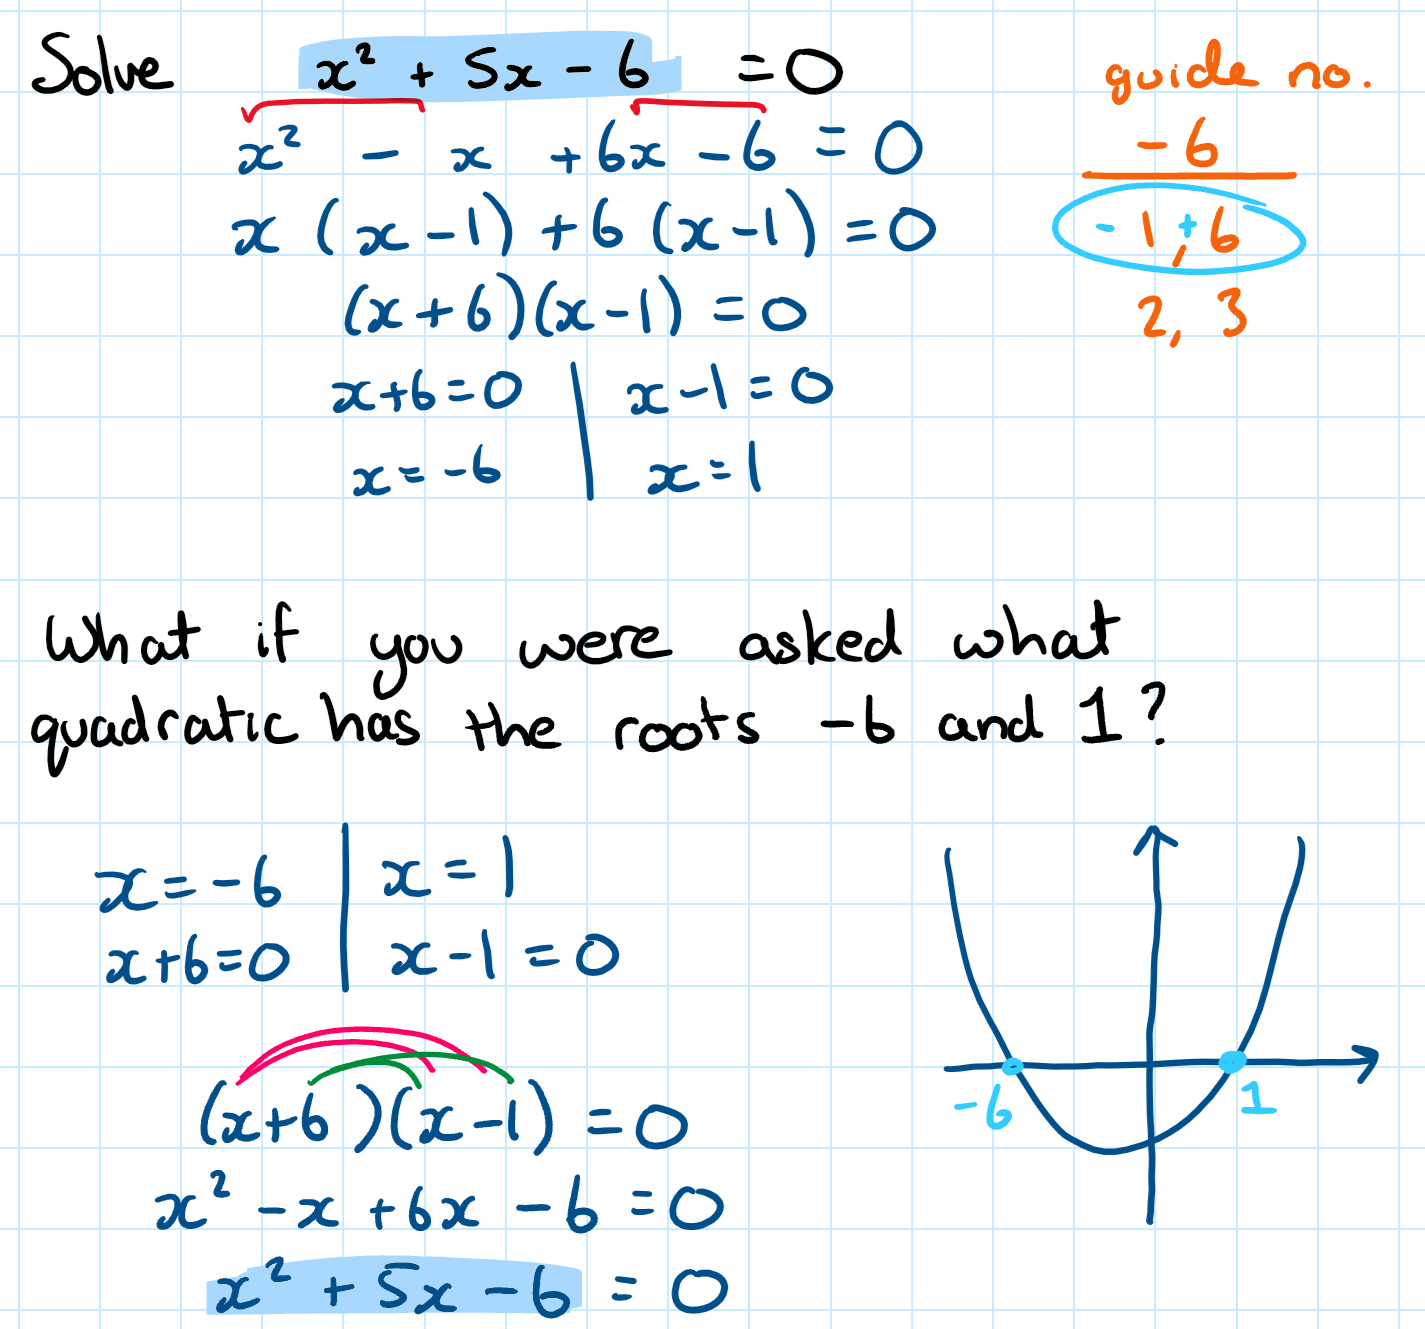 Solve x² + 5x - 6 = 0
x² - x + 6x - 6 = 0
x (x - 1) + 6 (x - 1) = 0
(x + 6)(x - 1) = 0
x + 6 = 0 | x - 1 = 0
x = -6 | x = 1
guide no.
-6
-1, +6
2, 3
What if you were asked what
quadratic has the roots -6 and 1?
x = -6 | x = 1
x + 6 = 0 | x - 1 = 0
(x + 6)(x - 1) = 0
x² - x + 6x - 6 = 0
x² + 5x - 6 = 0
-6 1